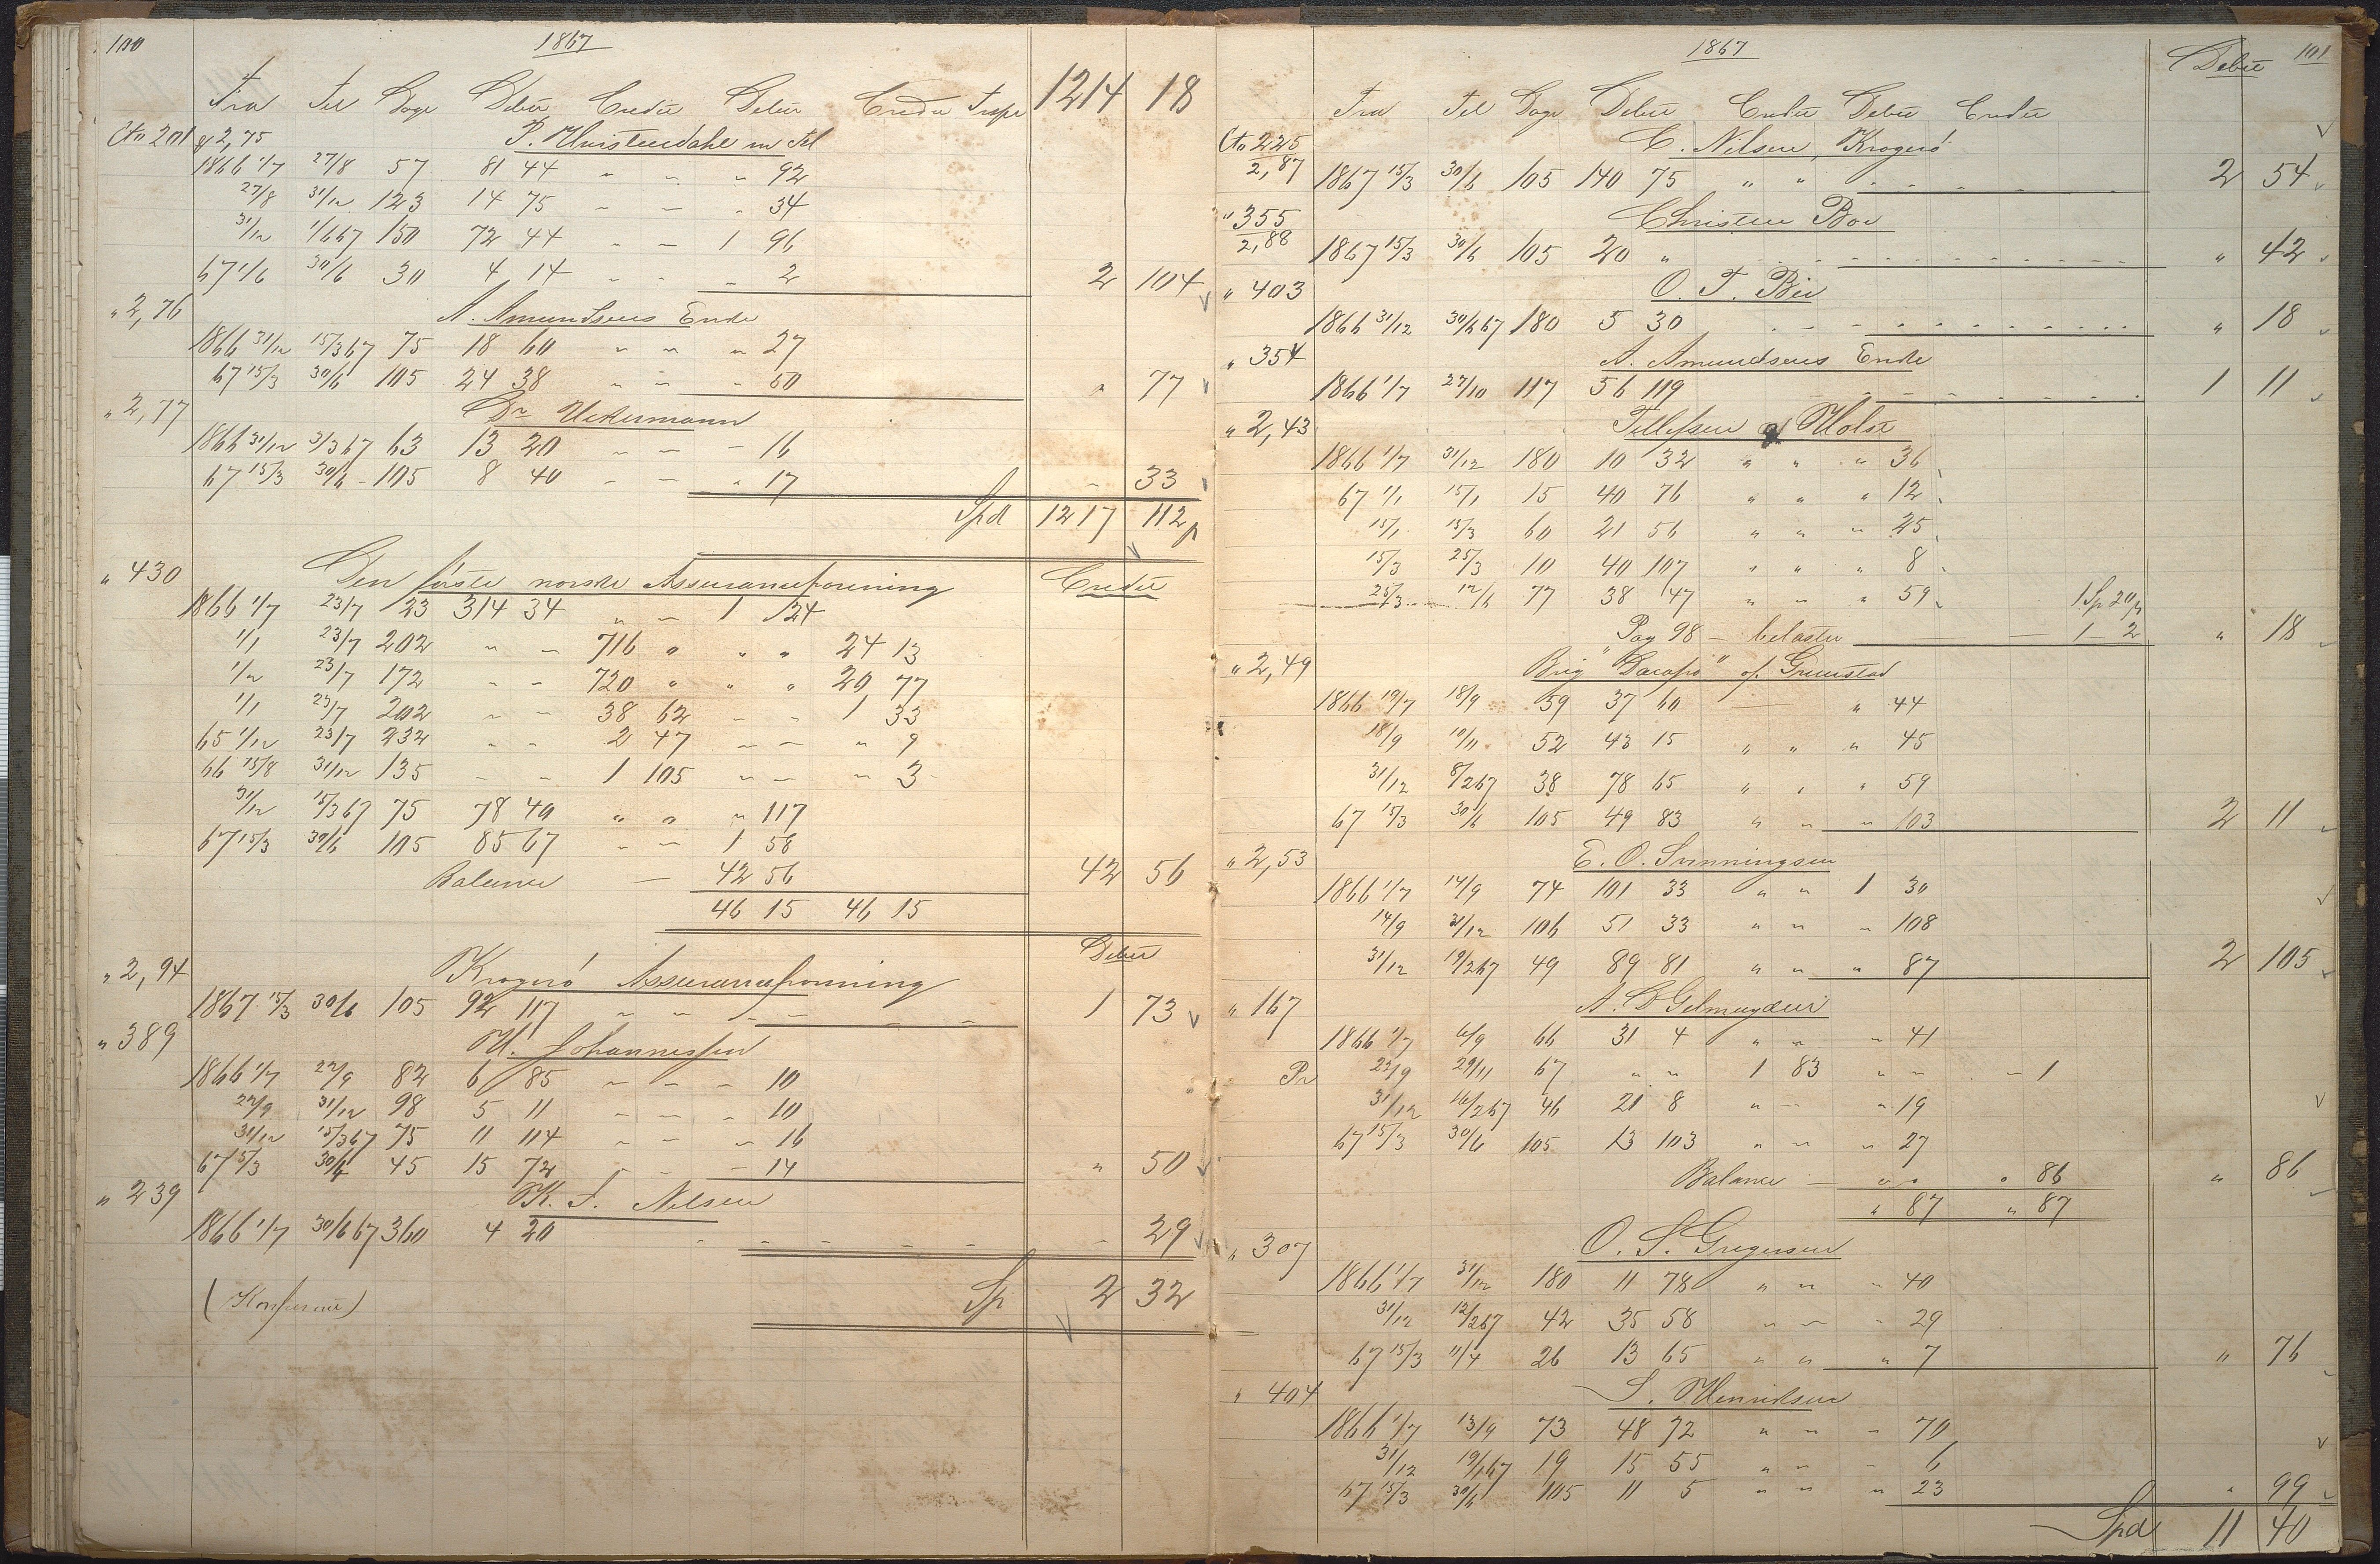 100
1867
Fra Til Dage Debit Credit Debit Credit Trspt 1214 18
Cto 201 & 2,75 P. Huistendahl m fl
1866 1/7 27/8 57 81 44 " " " 92
27/8 31/12 123 14 75 " " " 34
31/12 1/6 67 150 72 44 " " 1 96
67 1/6 30/6 30 4 14 " " " 2 2 104
" 2,76 A. Amundsens Enke
1866 31/12 15/3 67 75 18 60 " " " 27
67 15/3 30/6 105 24 38 " " " 50 " 77
" 2,77 Dr Uckermann
1866 31/12 3/3 67 63 13 20 " " " 16
67 15/3 30/6 105 8 40 " " " 17 " 33
Spd 1217 112
" 430 Den første norske Assuranceforening Credit
1866 1/7 23/7 23 314 34 " " 1 24
1/1 23/7 202 " " 716 " " " 24 13
1/2 23/7 172 " " 720 " " " 20 77
1/1 23/7 202 " " 38 62 " " 1 33
65 1/12 23/7 232 " " 2 47 " " " 9
66 15/8 31/12 135 " " 1 105 " " " 3
31/12 15/3 67 75 78 40 " " " 117
67 15/3 30/6 105 85 67 " " 1 58
Balance — 42 56 42 56
46 15 46 15
Debit
" 2,94 Kragerö Assuranceforening
1867 15/3 30/6 105 92 117 " " " 1 73
" 389 H. Johannessen
1866 1/7 22/9 82 6 85 " " " 10
22/9 31/12 98 5 11 " " " 10
31/12 15/3 67 75 11 114 " " " 16
67 15/3 30/4 45 15 72 " " " 14 " 50
" 239 K. S. Nilsen
1866 1/7 30/6 67 360 4 20 " 29
(Konfereret) Sp 2 32
1867 Debit 101
Fra Til Dage Debit Credit Debit Credit
Cto 225 C. Nilsen, Kragerö
2,87 1867 15/3 30/6 105 140 75 " " 2 54
" 355 Christen Boe
2,88 1867 15/3 30/6 105 20 " " 42
" 403 O. T. Bie
1866 31/12 30/6 67 180 5 30 " 18
" 354 A. Amundsens Enke
1866 1/7 27/10 117 56 119 1 11
" 2,43 Tellefsen & Holst
1866 1/7 31/12 180 10 32 " " " 36
67 1/1 15/1 15 40 76 " " " 12
15/1 15/3 60 21 56 " " " 25
15/3 25/3 10 40 107 " " " 8
25/3 12/6 77 38 47 " " " 59 1 Sp 20 β
Pag 98 — belastet 1 — 2 " 18
" 2,49 Brig "Dacapo" af Grimstad
1866 19/7 18/9 59 37 60 " 44
18/9 10/11 52 43 15 " " " 45
31/12 8/2 67 38 78 65 " " " 59
67 15/3 30/6 105 49 83 " " " 103 2 11
" 2,53 E. O. Svenningsen
1866 1/7 14/9 74 101 33 " " 1 30
14/9 31/12 106 51 33 " " " 108
31/12 19/2 67 49 89 81 " " " 87 2 105
" 167 A. D Gelmuyden
1866 1/7 6/9 66 31 4 " " " 41
Pr 22/9 29/11 67 " " 1 83 " " " 1
31/12 16/2 67 46 21 8 " " " 19
67 15/3 30/6 105 13 103 " " " 27
Balance — " " " 86 " 86
" 87 " 87
" 307 O. S. Gregersen
1866 1/7 31/12 180 11 78 " " " 40
31/12 12/2 67 42 35 58 " " " 29
67 15/3 11/4 26 13 65 " " " 7 " 76
" 404 S. Henriksen
1866 1/7 13/9 73 48 72 " " " 70
31/12 19/1 67 19 15 55 " " " 6
67 15/3 30/6 105 11 5 " " " 23 " 99
Spd 11 40